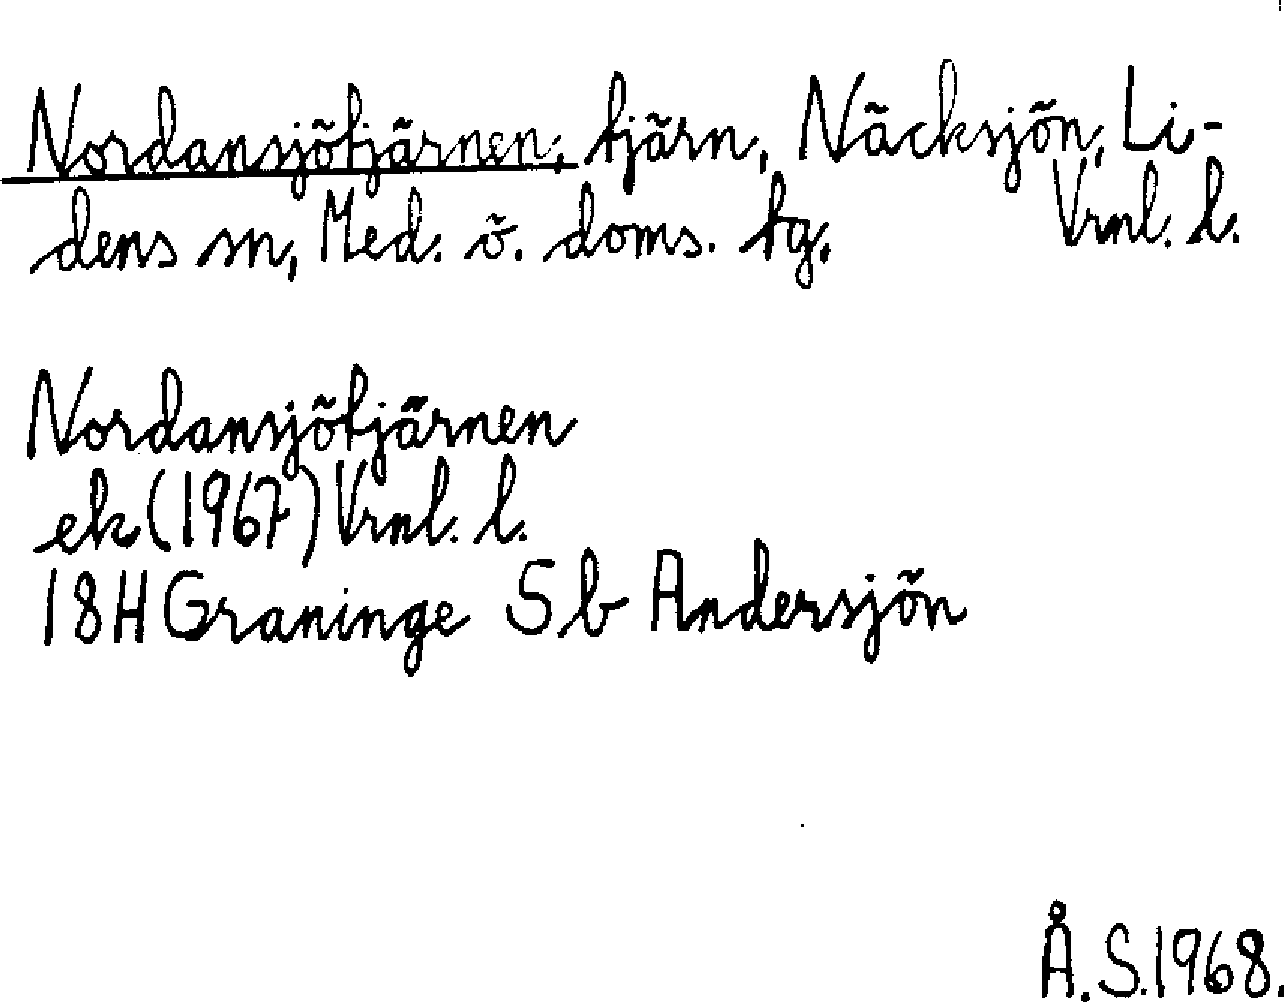 Nordansjötjärnen; tjärn, Näcksjön, Li-
dens sn, Med. ö. doms. tg. Vrnl. l.
Nordansjötjärnen
ek (1967) Vrnl. l.
18H Graninge 5b Andersjön
Å.S.1968.